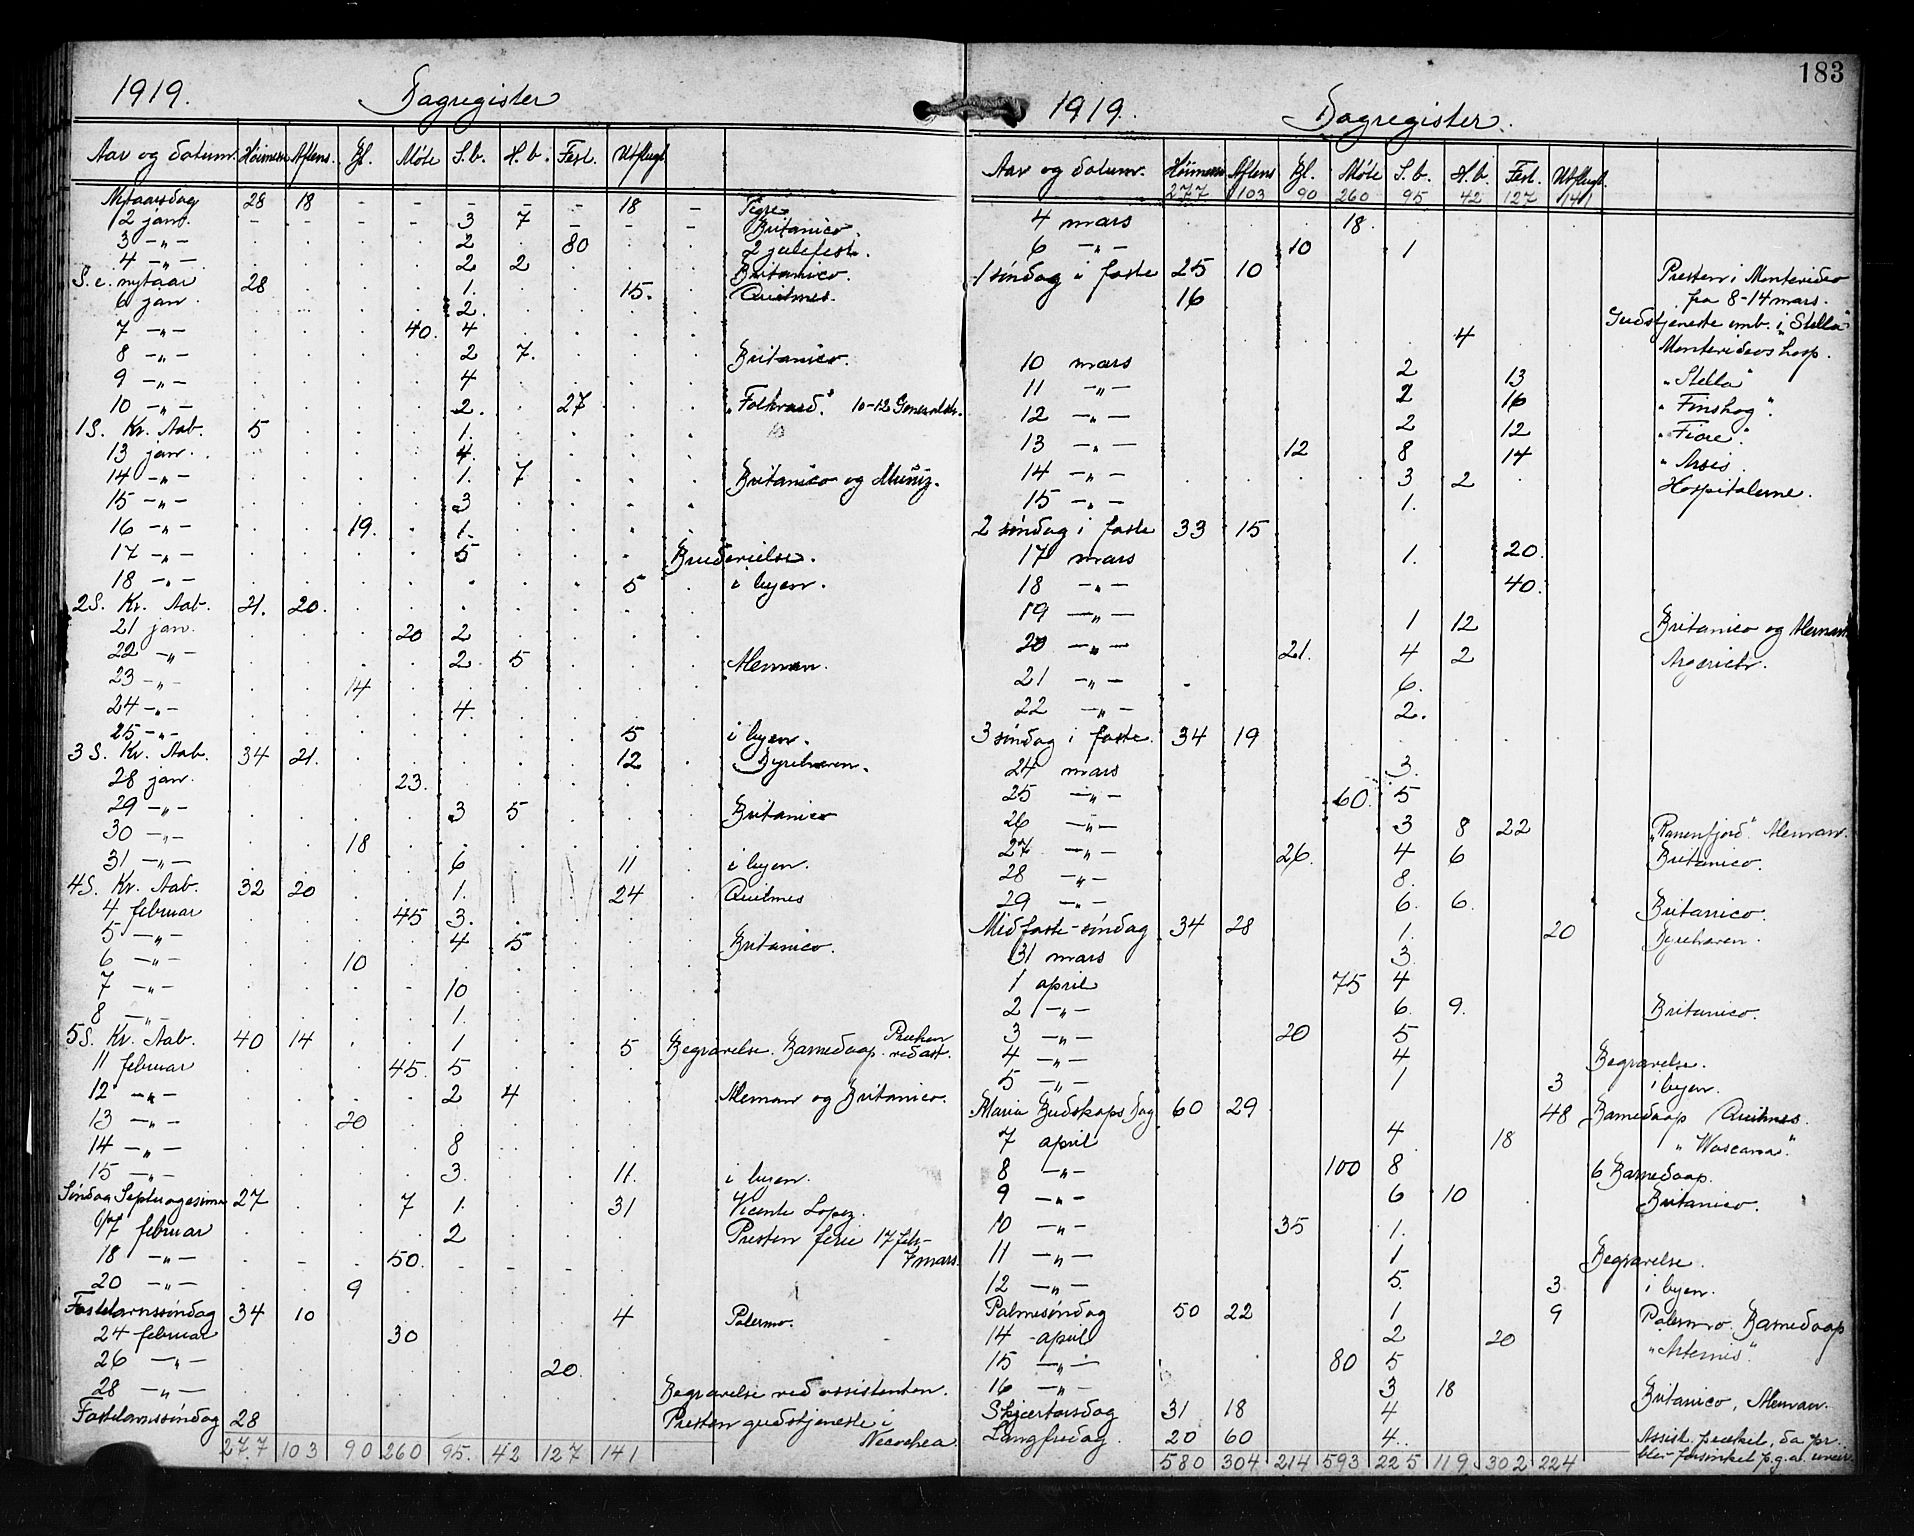 183
1919. Dagregister
Aar og datum. Høimesse Aftens. Bl. Møte S.b. H.b. Fest. Utflugt.
Nytaarsdag 28 18 - - - - - 18 - Tigre
2 jan. - - - - 3 7 - - - Britanico.
3 -„- 2 80 2 julefest.
4 -„- 2 2 Britanico.
S. e. nytaar 28 1. 15. Quilmes.
6 jan. 2.
7 -„- 40. 4
8 -„- 2 7. Britanico.
9 -„- 4
10 -„- 2. 27 „Folkvard". 10-12 Generalstr.
1 S. Kr. Aab. 5 1.
13 jan. 4.
14 -„- 1. 7 Britanico og Muniz.
15 -„- 3
16 -„- 19. 1.
17 -„- 5 Brudevielse.
18 -„- 5 i byen.
2 S. Kr. Aab. 21. 20.
21 jan. 20 2
22 -„- 2. 5 Aleman.
23 -„- 14
24 -„- 4.
25 -„- 5 i byen.
3 S. Kr. Aab. 34 21. 12 Dyrehaven.
28 jan. 23.
29 -„- 3 5 Britanico
30 -„- 18
31 -„- 6 11 i byen.
4 S. Kr. Aab. 32 20 1. 24 Quilmes
4 februar 45 3.
5 -„- 4 5 Britanico.
6 -„- 10
7 -„- 10
8 -„- 1.
5 S. Kr. Aab. 40 14 1 5 Begravelse. Barnedaap. Præken ved ast.
11 februar 45. 5
12 -„- 2 4 Aleman og Britanico.
13 -„- 20
14 -„- 8
15 -„- 3. 11. i byen.
Søndag Septuagesima 27 7 1. 31 Vicente Lopez.
17 februar 2 Presten ferie 17 feb-
18 -„- 50. 7 mars.
20 -„- 9
Fastelavnssøndag 34 10 4 Palermo.
24 februar 30
26 -„- 20.
28 -„- Begravelse ved assistenten.
Fastelavnssøndag 28 Presten gudstjeneste i
Necochea.
277 103 90 260 95. 42 127 141
1919. Dagregister.
Aar og datum. Høimesse Aftens Bl. Møte S.b. H.b. Fest. Utflugt.
277 103 90 260 95 42 127 141
4 mars 18.
6 -„- 10 1
1 søndag i faste 25 10 Presten i Montevideo
16 fra 8-14 mars.
4 Gudstjeneste omb. i „Stella"
10 mars Montevideos hosp.
2 13 „Stella"
11 -„- 2 16 „Finshog".
12 -„- 2 12 „Fiore".
13 -„- 12 8 14 „Arsis.
14 -„- 3 2 Hospitalerne.
15 -„- 1.
2 søndag i faste 33 15
17 mars 1. 20.
18 -„- 40.
19 -„- 1 12 Britanico og Aleman
20 -„- 21. 4 2 Argerich.
21 -„- 6.
22 -„- 2.
3 søndag i faste. 34 19
24 mars 3.
25 -„- 60. 5
26 -„- 3 8 22 „Ranenfjord" Aleman.
27 -„- 26. 4 6 Britanico.
28 -„- 8.
29 -„- 6. 6. Britanico.
Midfaste-søndag 34 28 1. 20 Dyrehaven.
31 mars 3.
1 april 75 4
2 -„- 6. 9. Britanico.
3 -„- 20 5
4 -„- 4 Begravelse.
5 -„- 1 3 i byen.
Maria Budskaps Dag 60 29 48 Barnedaap Quilmes.
7 april 4 18 „Wascana."
8 -„- 100 8 6 Barnedaap.
9 -„- 6 10 Britanico.
10 -„- 35 1.
11 -„- 1 Begravelse.
12 -„- 5. 3 i byen.
Palmesøndag 50 22 1 9 Palermo. Barnedaap
14 april 2 20 „Artemis".
15 -„- 80 5
16 -„- 3 18 Britanico, Aleman.
Skjærtorsdag 31 18 4
Langfredag. 20 60 4.. Assist. præket, da pr.
blev forsinket p.g.a.
580 304 214 593 225 119. 302 224